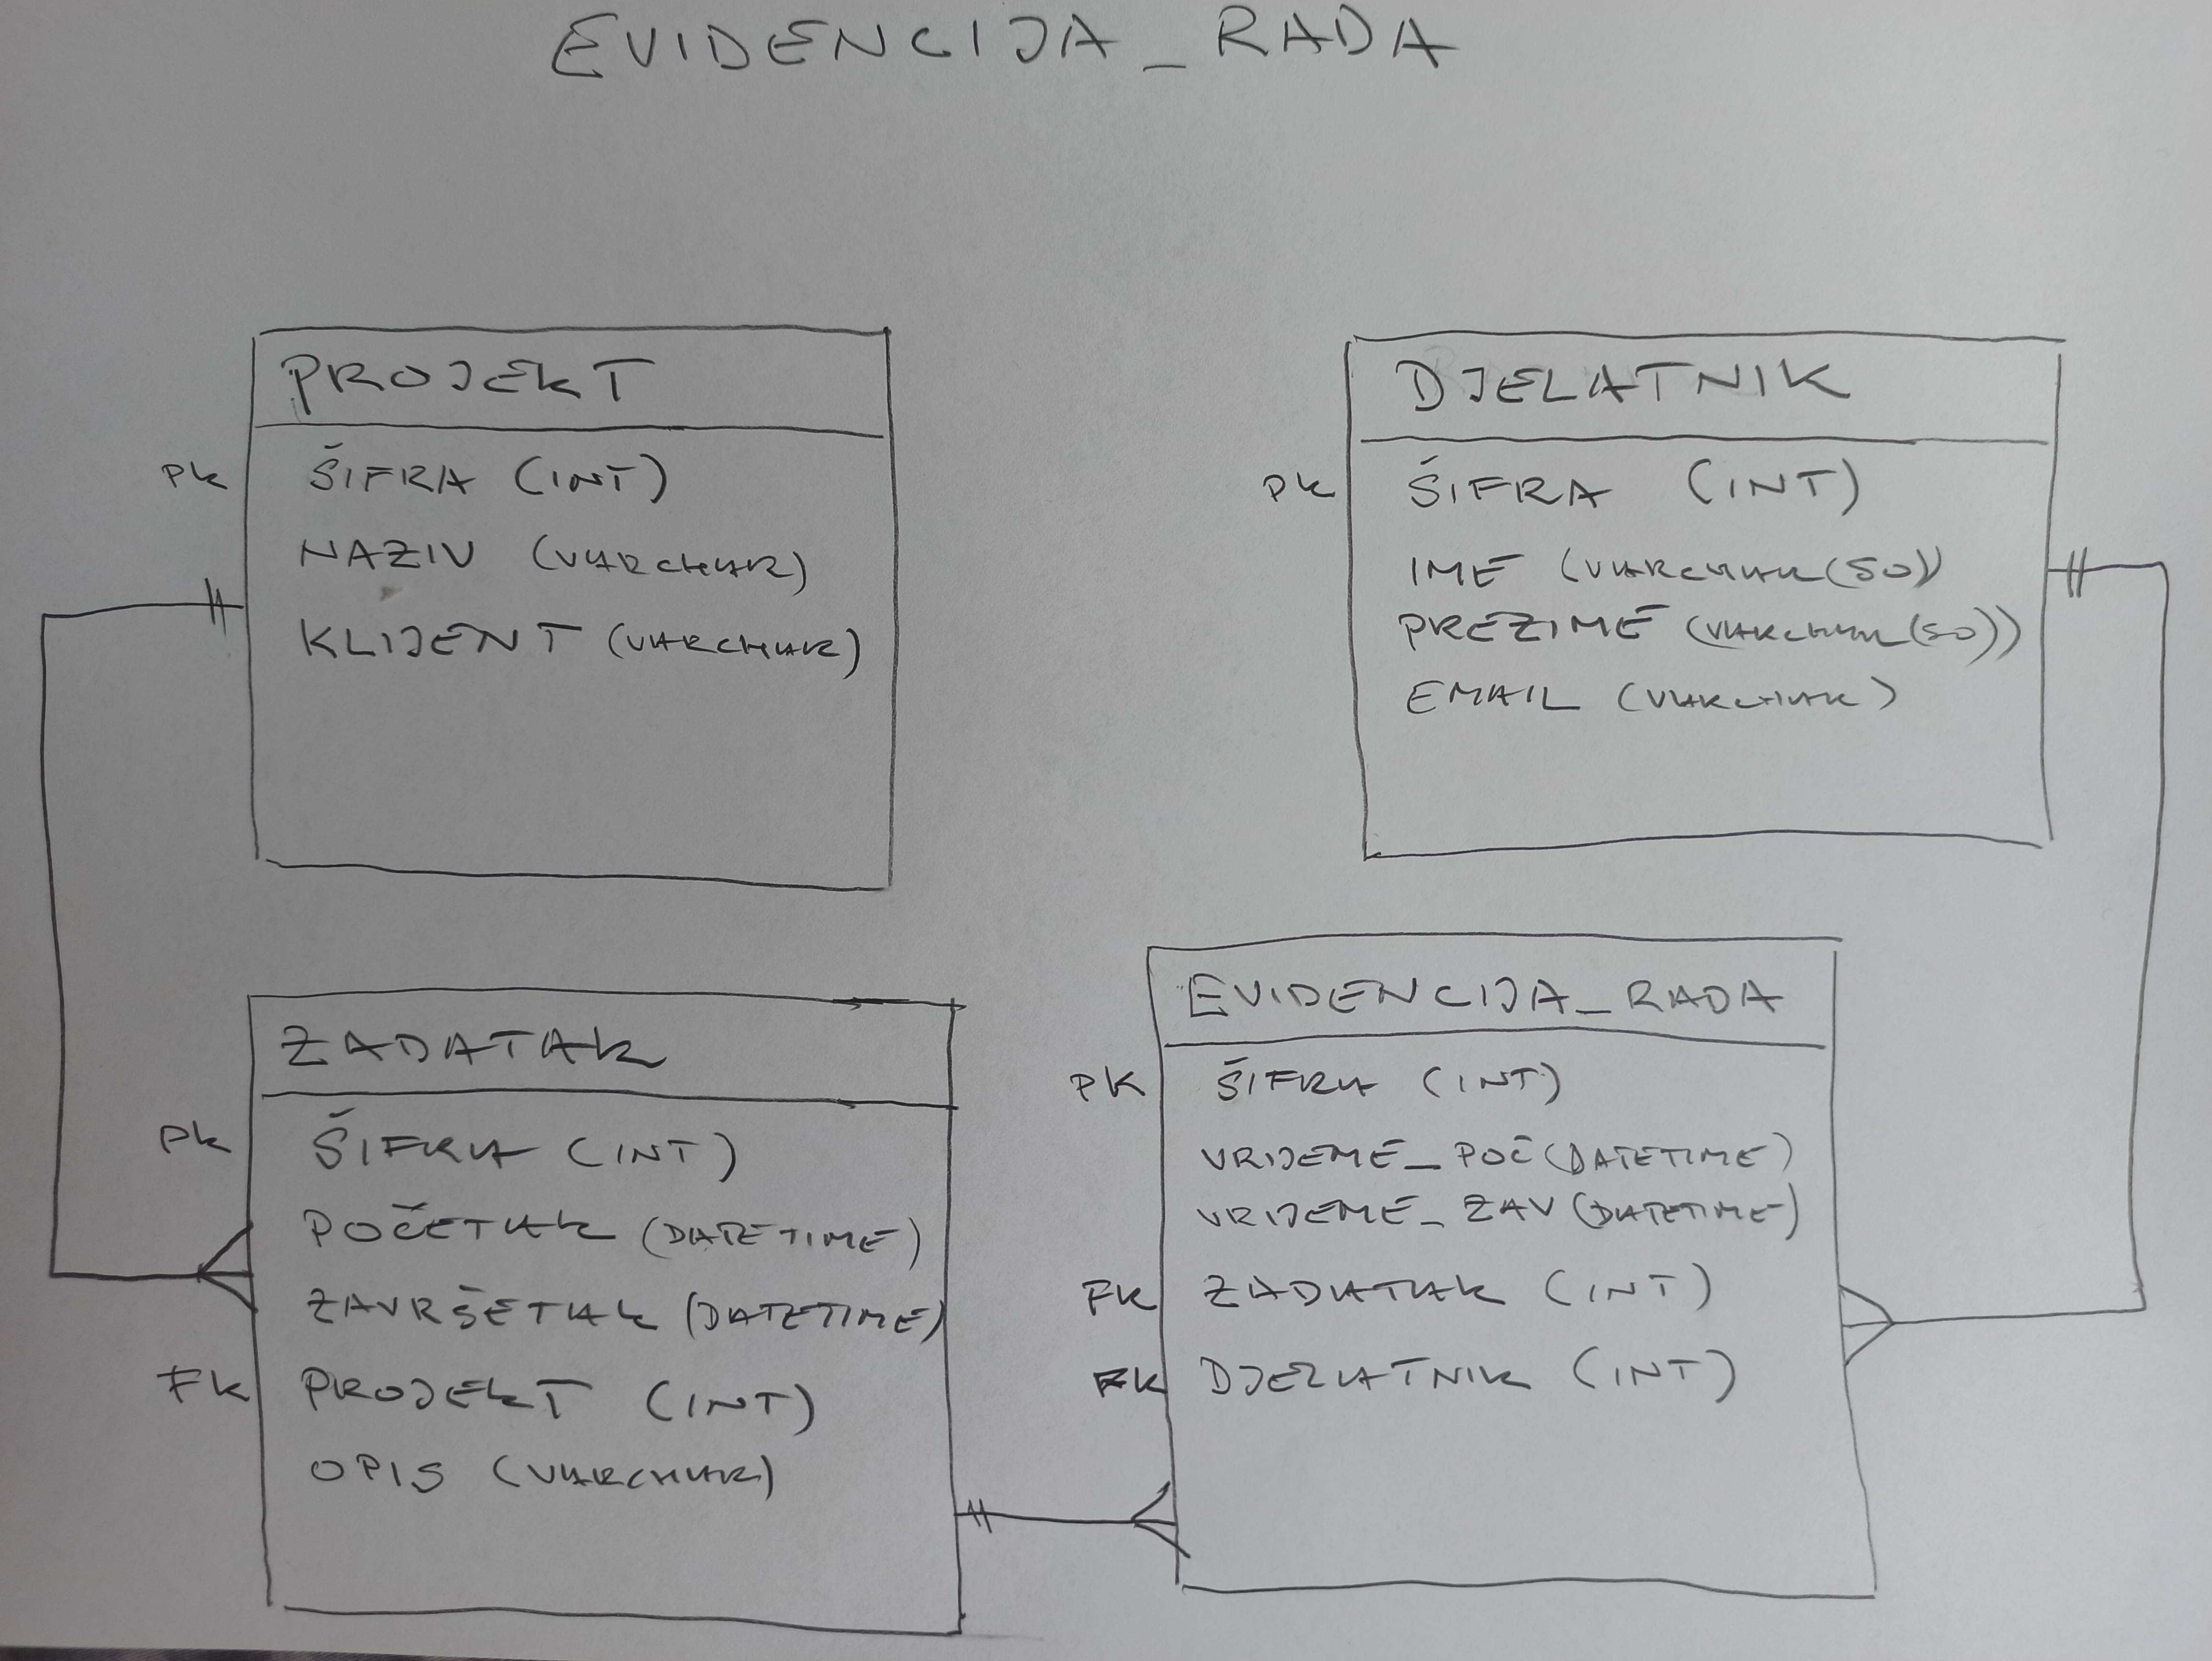 EVIDENCIJA_RADA
PROJEKT
PK ŠIFRA (INT)
NAZIV (VARCHAR)
KLIJENT (VARCHAR)
DJELATNIK
PK ŠIFRA (INT)
IME (VARCHAR(50))
PREZIME (VARCHAR(50))
EMAIL (VARCHAR)
ZADATAK
PK ŠIFRA (INT)
POČETAK (DATETIME)
ZAVRŠETAK (DATETIME)
FK PROJEKT (INT)
OPIS (VARCHAR)
EVIDENCIJA_RADA
PK ŠIFRA (INT)
VRIJEME_POČ (DATETIME)
VRIJEME_ZAV (DATETIME)
FK ZADATAK (INT)
FK DJELATNIK (INT)